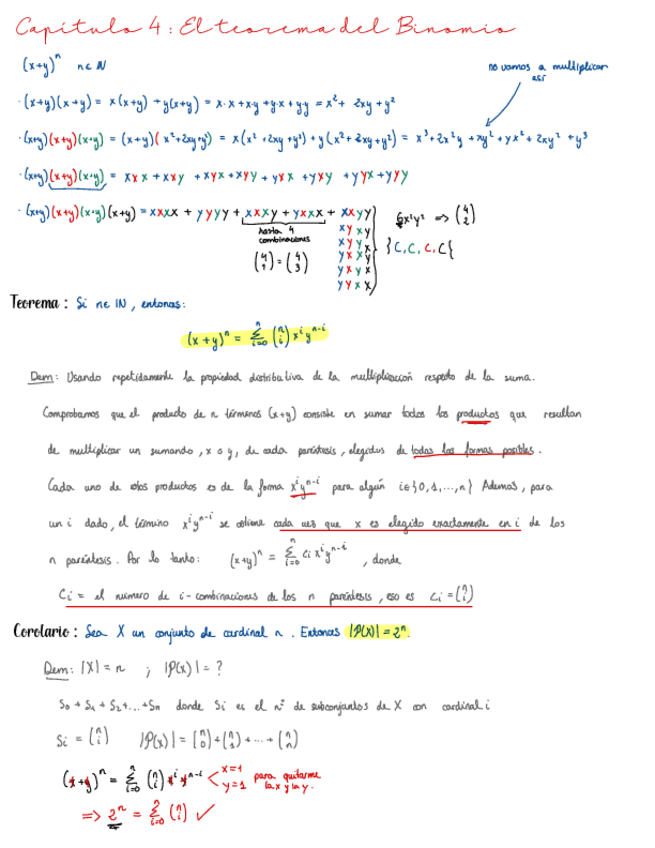 Capítulo 4: El teorema del Binomio
(x+y)ⁿ n∈ℕ
no vamos a multiplicar
así
· (x+y)(x+y) = x(x+y) + y(x+y) = x·x + x·y + y·x + y·y = x² + 2xy + y²
· (x+y)(x+y)(x+y) = (x+y)(x²+2xy+y²) = x(x²+2xy+y²) + y(x²+2xy+y²) = x³ + 2x²y + xy² + yx² + 2xy² + y³
· (x+y)(x+y)(x+y) = xxx + xxy + xyx + xyy + yxx + yxy + yyx + yyy
· (x+y)(x+y)(x+y)(x+y) = xxxx + yyyy + xxxy + yxxx + xxyy
6x²y² => (4 2)
hasta 4
combinaciones
(4 1) = (4 3)
xyxy
xyyx
yxxy
yxyx
yyxx
}C, C, C, C{
Teorema: Si n∈ℕ, entonces:
(x+y)ⁿ = Σ_{i=0}^{n} (n i) xⁱ yⁿ⁻ⁱ
Dem: Usando repetidamente la propiedad distributiva de la multiplicación respecto de la suma.
Comprobamos que el producto de n términos (x+y) consiste en sumar todos los productos que resultan
de multiplicar un sumando, x o y, de cada paréntesis, elegidos de todas las formas posibles.
Cada uno de estos productos es de la forma xⁱyⁿ⁻ⁱ para algún i∈{0,1,...,n} Además, para
un i dado, el término xⁱyⁿ⁻ⁱ se obtiene cada vez que x es elegido exactamente en i de los
n paréntesis. Por lo tanto: (x+y)ⁿ = Σ_{i=0}^{n} Ci xⁱyⁿ⁻ⁱ, donde
Ci = el número de i-combinaciones de los n paréntesis, eso es Ci = (n i)
Corolario: Sea X un conjunto de cardinal n. Entonces |P(X)| = 2ⁿ.
Dem: |X| = n ; |P(x)| = ?
S₀ + S₁ + S₂ + ... + Sn donde Si es el nº de subconjuntos de X con cardinal i
Si = (n i) |P(x)| = (n 0) + (n 1) + ... + (n n)
(x+y)ⁿ = Σ_{i=0}^{n} (n i) xⁱ yⁿ⁻ⁱ < x=1
y=1 para quitarme
la x y la y.
=> 2ⁿ = Σ_{i=0}^{n} (n i) ✓